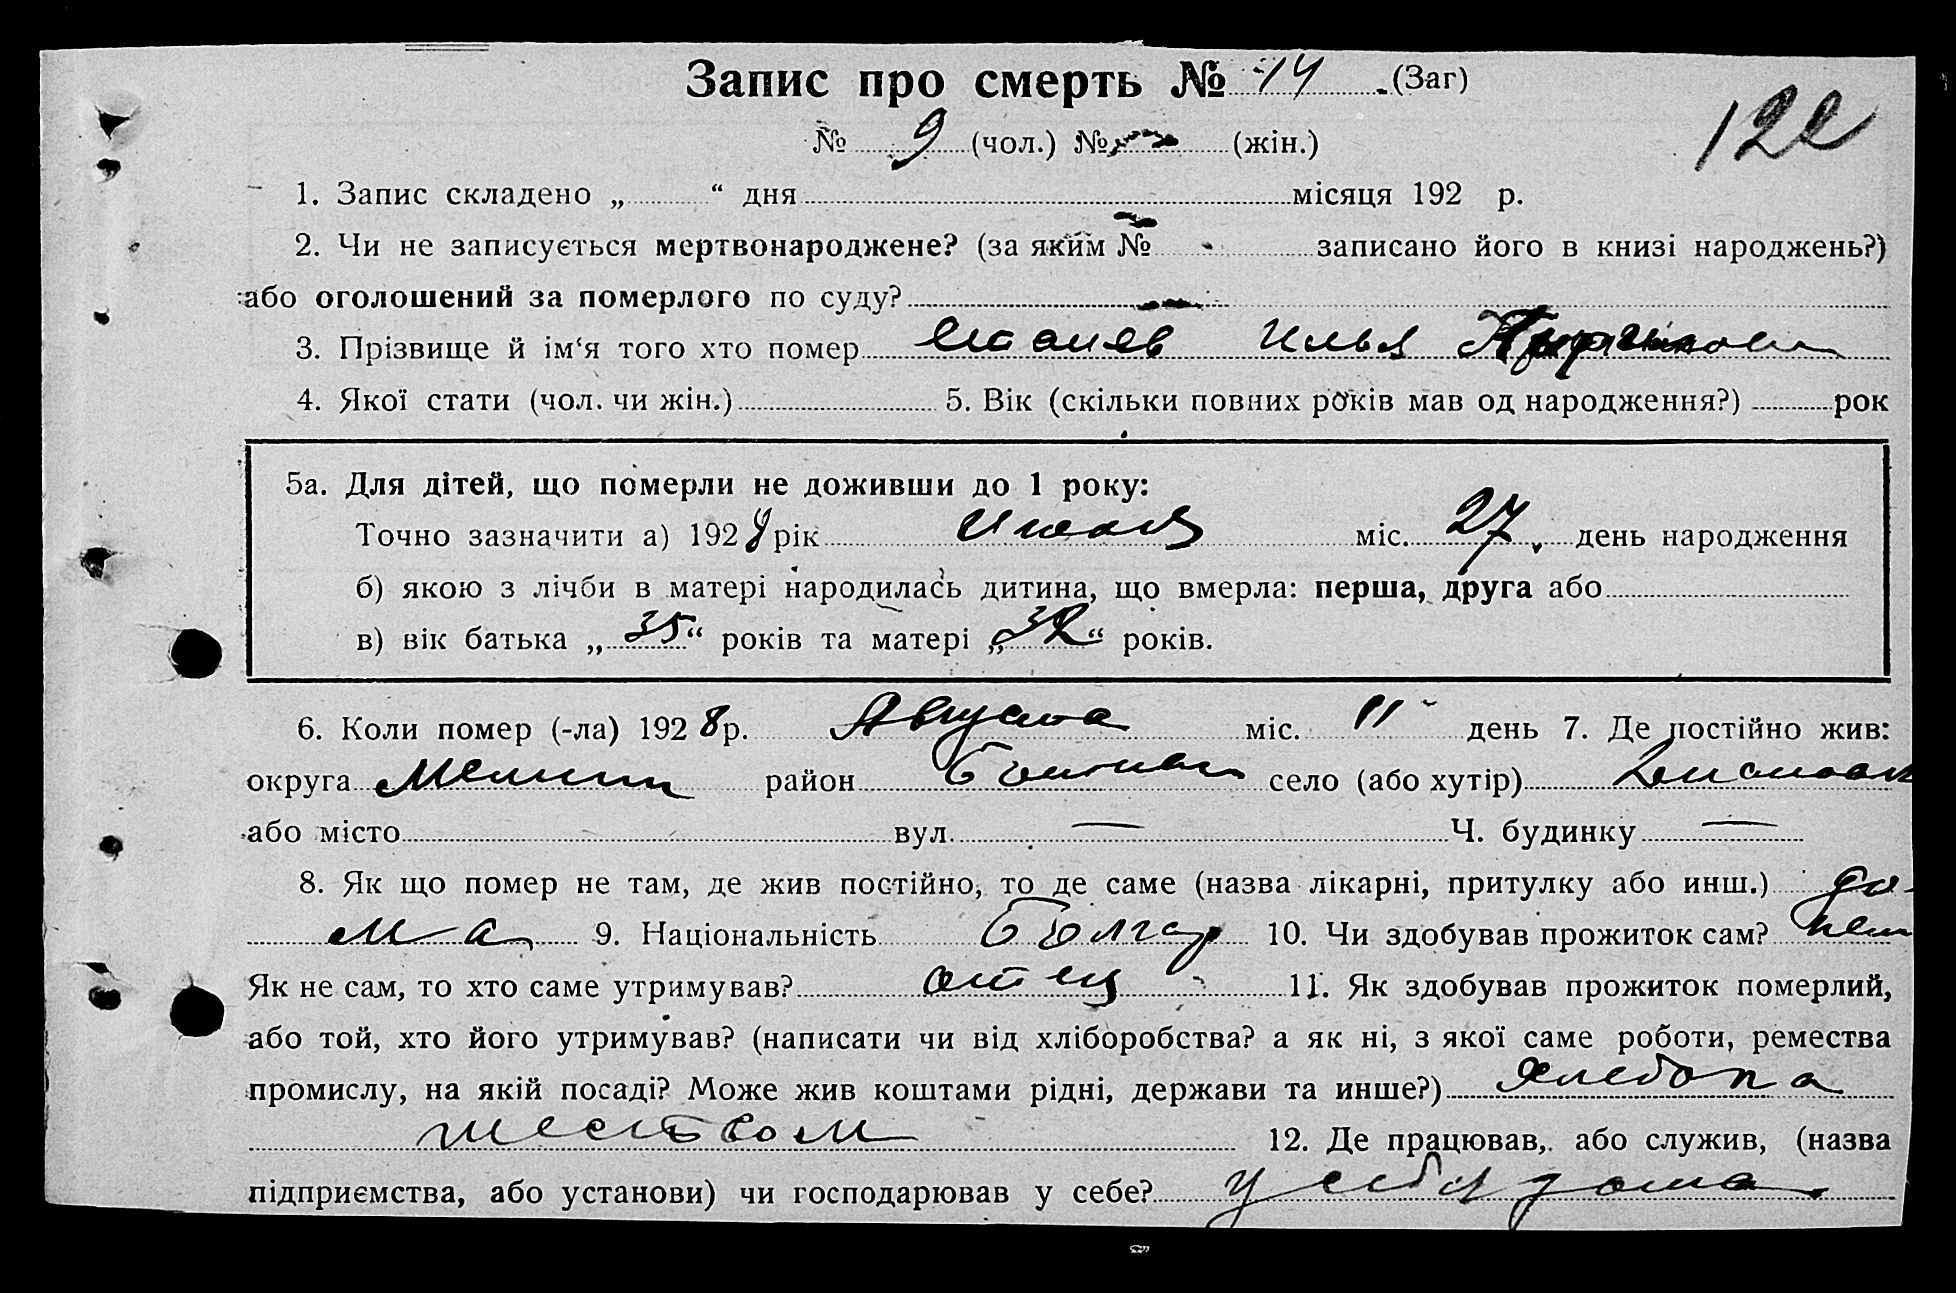 Запис про смерть № 14 (Заг)
122
№ 9 (чол.) № — (жін.)
1. Запис складено „ “ дня місяця 192 р.
2. Чи не записується мертвонароджене? (за яким № - записано його в книзі народжень?)
або оголошений за померлого по суду? —
3. Прізвище й ім‘я того хто помер Илья
4. Якої стати (чол. чи жін.) 5. Вік (скільки повних років мав од народження?) рок
5а. Для дітей, що померли не доживши до 1 року:
Точно зазначити а) 1928 рік міс. 27 день народження
б) якою з лічби в матері народилась дитина, що вмерла: перша, друга або
в) вік батька „35“ років та матері „32“ років.
6. Коли помер (-ла) 1928 р. Августа міс. 11 день 7. Де постійно жив:
округа Мелит район село (або хутір)
або місто вул. — Ч. будинку —
8. Як що помер не там, де жив постійно, то де саме (назва лікарні, притулку або инш.) до-
ма 9. Національність Болгар 10. Чи здобував прожиток сам? нет
Як не сам, то хто саме утримував? отец 11. Як здобував прожиток померлий,
або той, хто його утримував? (написати чи від хліборобства? а як ні, з якої саме роботи, ремества
промислу, на якій посаді? Може жив коштами рідні, держави та инше?) Хлебопа
шеством 12. Де працював, або служив, (назва
підприємства, або установи) чи господарював у себе? у себя дома